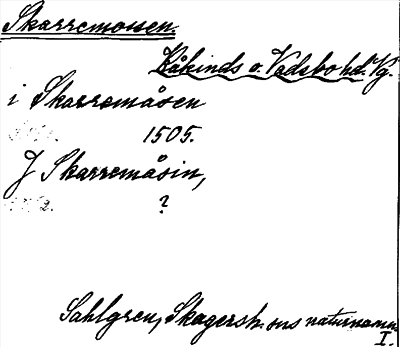 Skarremossen.
Kåkinds o. Vadsbo hd. Vg.
i Skarremåsen
1505.
J Skarremåsin,
2. ?
Sahlgren, Skagersh. ons naturnamn
I.